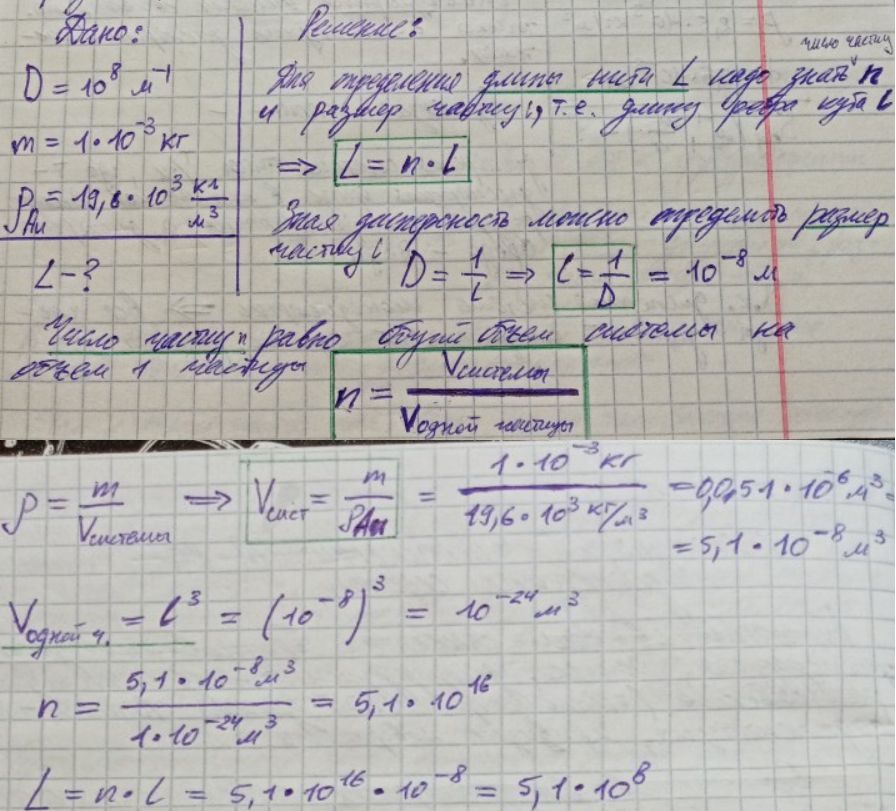 Дано:
D = 10⁸ м⁻¹
m = 1·10⁻³ кг
ρAu = 19,6·10³ кг/м³
L - ?
Решение:
число частиц
Для определения длины нити L надо знать n
и размер частиц l, т.е. длину ребра куба l
=> L = n·l
Зная дисперсность можно определить размер
частиц l
D = 1/l => l = 1/D = 10⁻⁸ м
Число частиц n равно общий объем системы на
объем 1 частицы
n = Vсистемы/Vодной частицы
ρ = m/Vсистемы => Vсист = m/ρAu = 1·10⁻³ кг/19,6·10³ кг/м³ = 0,051·10⁻⁶ м³ =
= 5,1·10⁻⁸ м³
Vодной ч. = l³ = (10⁻⁸)³ = 10⁻²⁴ м³
n = 5,1·10⁻⁸ м³/1·10⁻²⁴ м³ = 5,1·10¹⁶
L = n·l = 5,1·10¹⁶·10⁻⁸ = 5,1·10⁸